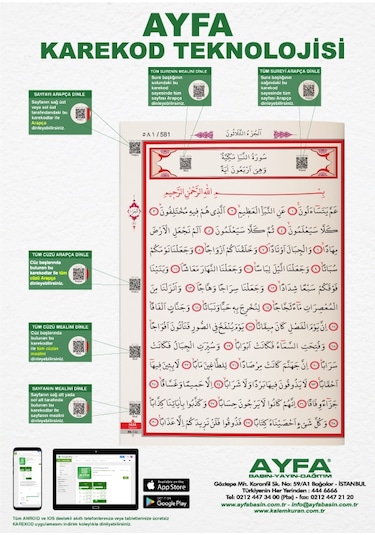 AYFA
KAREKOD TEKNOLOJİSİ
SAYFAYI ARAPÇA DİNLE
Sayfanın sağ üst
veya sol üst
tarafındaki bu
karekodlar ile
Arapça
dinleyebilirsiniz.
TÜM SURENİN MEALİNİ DİNLE
Sure başlığının
solundaki bu
karekod
sayesinde tüm
dinleyebilirsiniz.
TÜM SUREYİ ARAPÇA DİNLE
Sure başlığının
sağındaki bu
karekod
sayesinde tüm
dinleyebilirsiniz.
٥٨١ / 581
اَلْجُزْءُ الثَّلَاثُونَ
سُورَةُ النَّبَأِ مَكِّيَّةٌ
وَهِيَ أَرْبَعُونَ آيَةً
بِسْمِ اللّٰهِ الرَّحْمٰنِ الرَّحِيمِ
عَمَّ يَتَسَاءَلُونَ عَنِ النَّبَأِ الْعَظِيمِ الَّذِي هُمْ فِيهِ مُخْتَلِفُونَ
كَلَّا سَيَعْلَمُونَ ثُمَّ كَلَّا سَيَعْلَمُونَ أَلَمْ نَجْعَلِ الْأَرْضَ
مِهَادًا وَالْجِبَالَ أَوْتَادًا وَخَلَقْنَاكُمْ أَزْوَاجًا وَجَعَلْنَا نَوْمَكُمْ
سُبَاتًا وَجَعَلْنَا اللَّيْلَ لِبَاسًا وَجَعَلْنَا النَّهَارَ مَعَاشًا وَبَنَيْنَا
فَوْقَكُمْ سَبْعًا شِدَادًا وَجَعَلْنَا سِرَاجًا وَهَّاجًا وَأَنْزَلْنَا مِنَ
الْمُعْصِرَاتِ مَاءً ثَجَّاجًا لِنُخْرِجَ بِهِ حَبًّا وَنَبَاتًا وَجَنَّاتٍ أَلْفَافًا
إِنَّ يَوْمَ الْفَصْلِ كَانَ مِيقَاتًا يَوْمَ يُنْفَخُ فِي الصُّورِ فَتَأْتُونَ أَفْوَاجًا
وَفُتِحَتِ السَّمَاءُ فَكَانَتْ أَبْوَابًا وَسُيِّرَتِ الْجِبَالُ فَكَانَتْ
سَرَابًا إِنَّ جَهَنَّمَ كَانَتْ مِرْصَادًا لِلطَّاغِينَ مَآبًا لَابِثِينَ فِيهَا
أَحْقَابًا لَا يَذُوقُونَ فِيهَا بَرْدًا وَلَا شَرَابًا إِلَّا حَمِيمًا وَغَسَّاقًا
جَزَاءً وِفَاقًا إِنَّهُمْ كَانُوا لَا يَرْجُونَ حِسَابًا وَكَذَّبُوا بِآيَاتِنَا كِذَّابًا
وَكُلَّ شَيْءٍ أَحْصَيْنَاهُ كِتَابًا فَذُوقُوا فَلَنْ نَزِيدَكُمْ إِلَّا عَذَابًا
TÜM CÜZÜ ARAPÇA DİNLE
Cüz başlarında
bulunan bu
karekodlar ile tüm
cüzü Arapça
dinleyebilirsiniz.
TÜM CÜZÜN MEALİNİ DİNLE
Cüz başlarında
bulunan bu
karekodlar
ile tüm cüzün
mealini
dinleyebilirsiniz.
SAYFANIN MEALİNİ DİNLE
Sayfanın sağ alt yada
sol alt tarafında
bulunan bu
karekodlar ile
sayfanın mealini
dinleyebilirsiniz.
Available on the
App Store
GET IT ON
Google Play
Tüm ANROID ve IOS destekli akıllı telefonlarınıza veya tabletlerinize ücretsiz
KAREKOD uygulamasını indirim kolaylıkla dinleyebilirsiniz.
AYFA®
BASIN-YAYIN-DAĞITIM
Göztepe Mh. Karanfil Sk. No: 59/A1 Bağcılar - İSTANBUL
Türkiyenin Her Yerinden : 444 6666
Tel: 0212 447 34 00 (Pbx) - fax: 0212 447 21 20
www.ayfabasin.com.tr - info@ayfabasin.com.tr
www.kalemkuran.com.tr